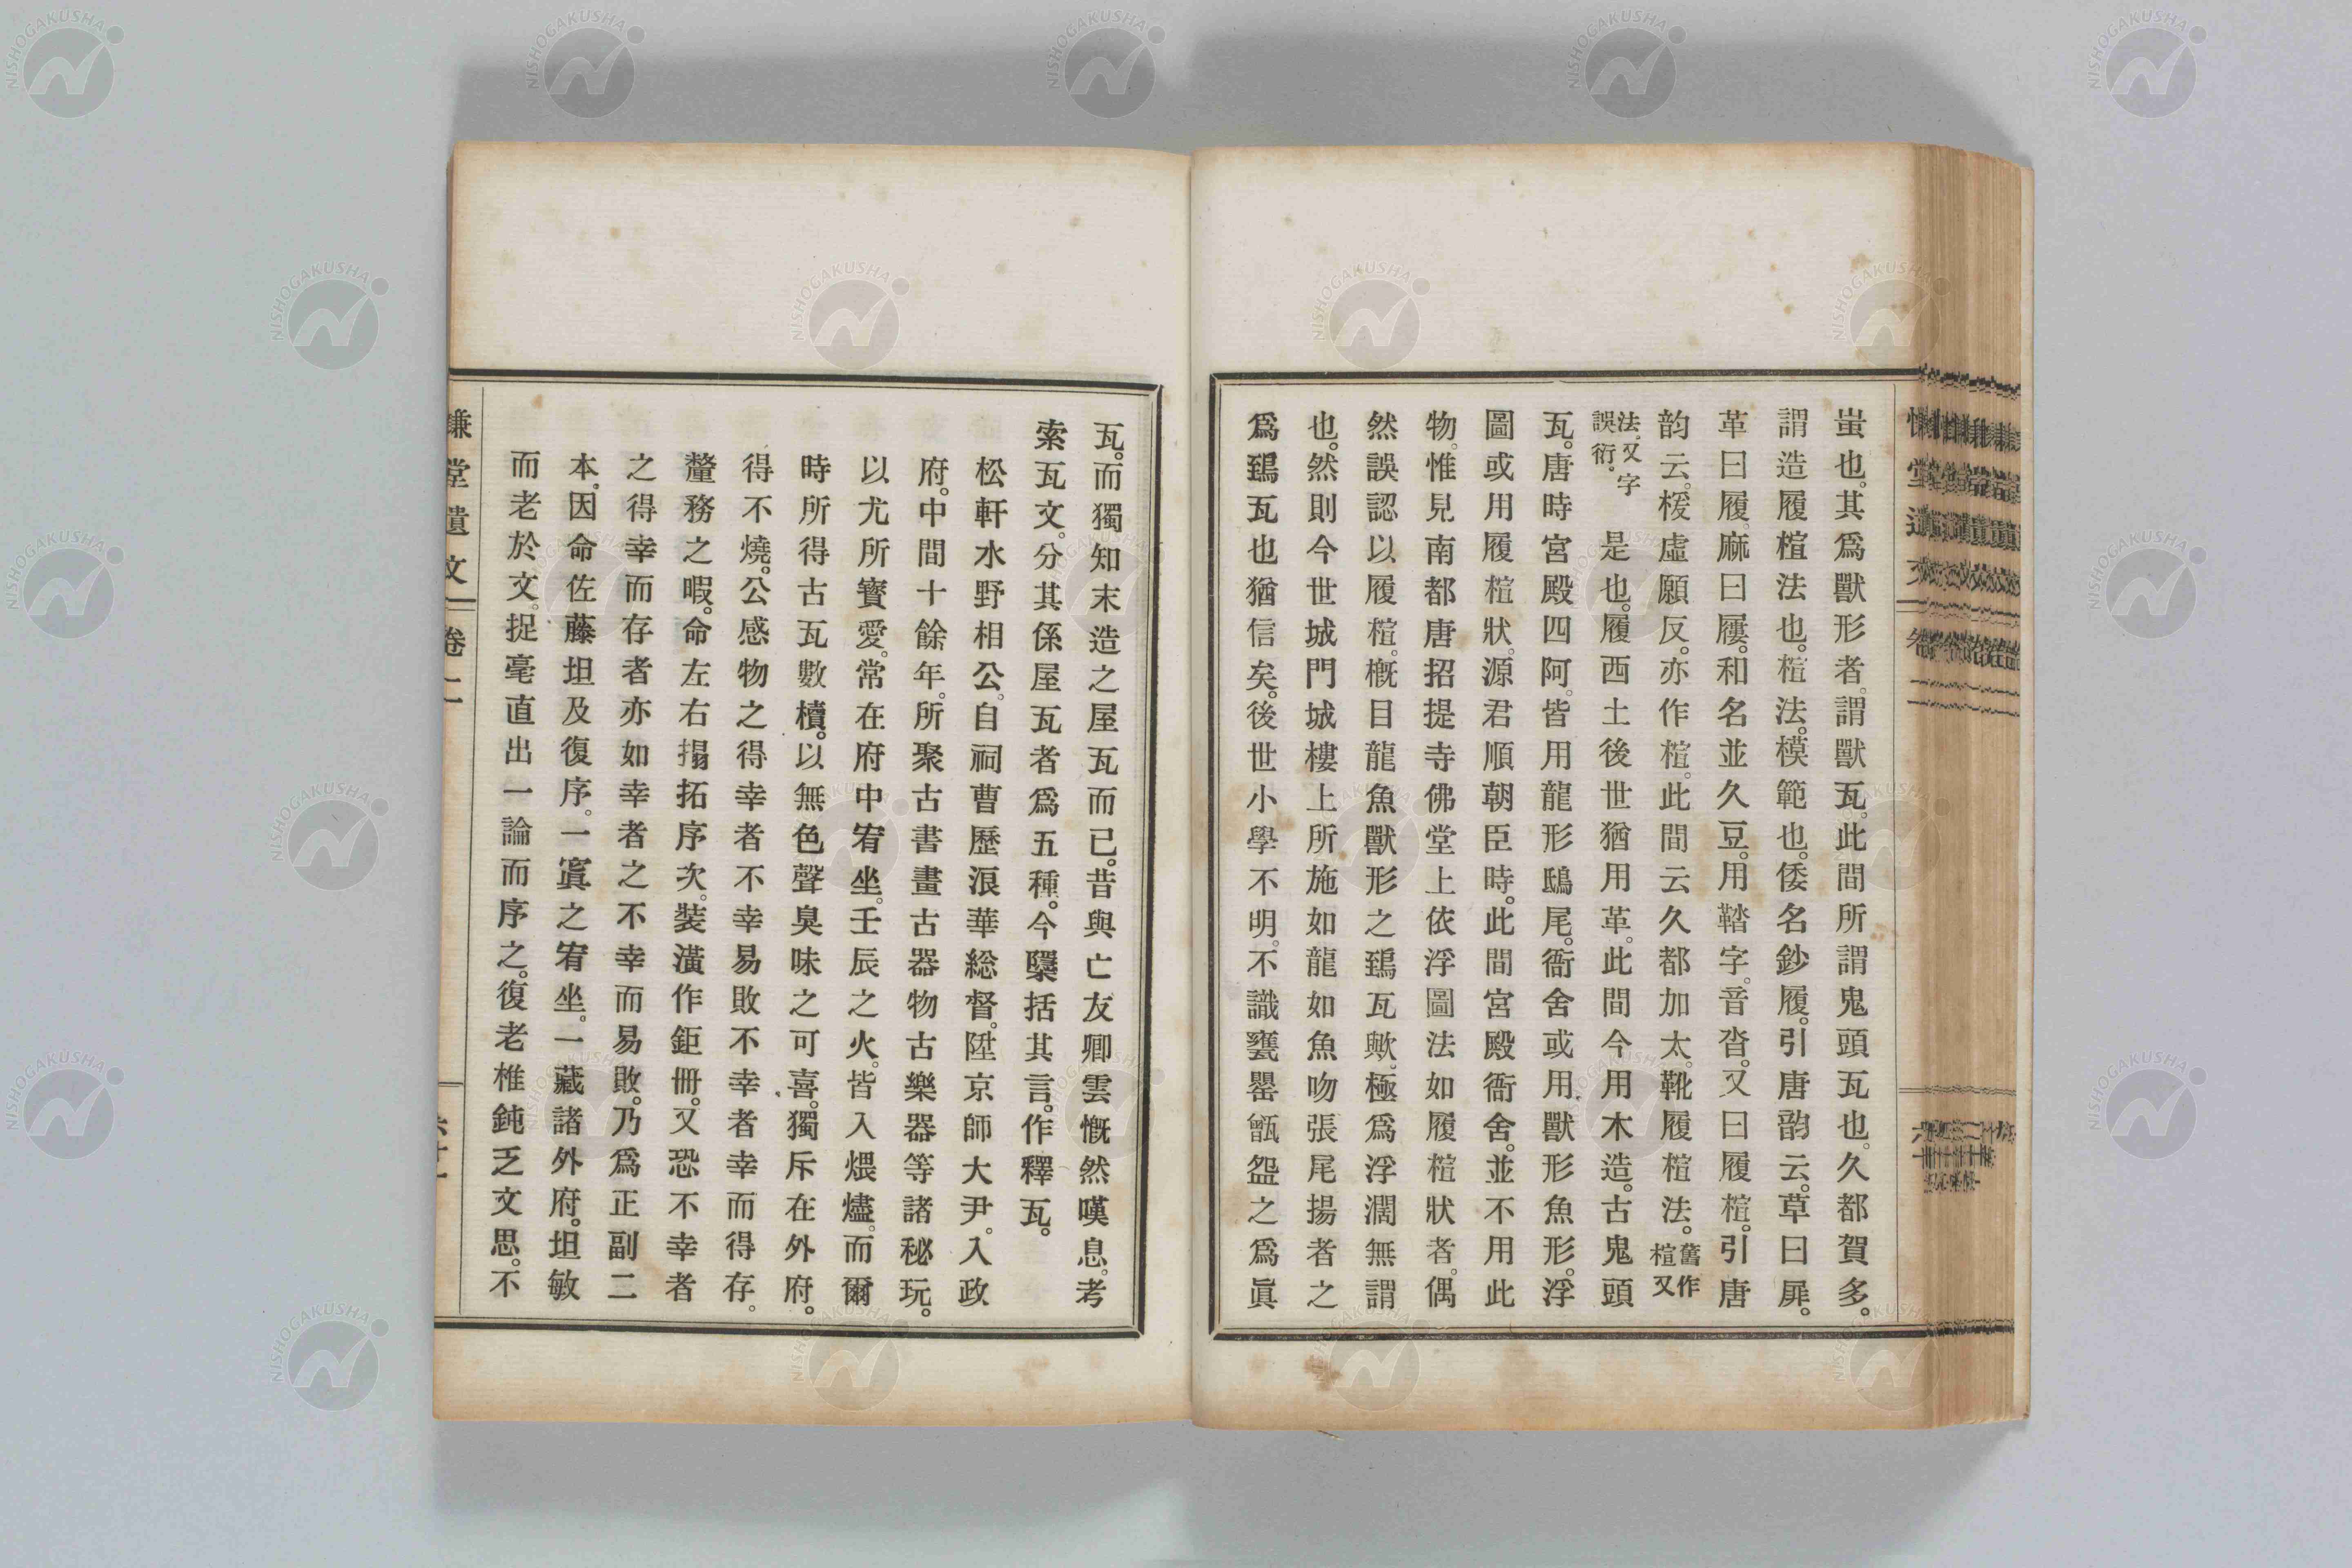 蚩也。其爲獸形者。謂獸瓦。此間所謂鬼頭瓦也。久都賀多。
謂造履楦法也。楦法。模範也。倭名鈔履。引唐韵云。草曰屝。
革曰履。麻曰屨。和名並久豆。用鞜字。音沓。又曰履楦。引唐
韵云。楥虛願反。亦作楦。此間云久都加太。靴履楦法。舊作楦又
法。又字誤衍。是也。履西土後世猶用革。此間今用木造。古鬼頭
瓦。唐時宮殿四阿。皆用龍形鴟尾。衙舍或用獸形魚形。浮
圖或用履楦狀。源君順朝臣時。此間宮殿衙舍。並不用此
物。惟見南都唐招提寺佛堂上依浮圖法如履楦狀者。偶
然誤認以履楦。概目龍魚獸形之鵄瓦歟。極爲浮濶無謂
也。然則今世城門城樓上所施如龍如魚吻張尾揚者之
爲鵄瓦也猶信矣。後世小學不明。不識甕罌甑盌之爲眞
瓦。而獨知末造之屋瓦而已。昔與亡友卿雲慨然嘆息。考
索瓦文。分其係屋瓦者爲五種。今檃括其言。作釋瓦。
松軒水野相公。自祠曹歷浪華総督。陞京師大尹。入政
府。中間十餘年。所聚古書畫古器物古樂器等諸秘玩。
以尤所寳愛。常在府中宥坐。壬辰之火。皆入煨燼。而爾
時所得古瓦數櫝。以無色聲臭味之可喜。獨斥在外府。
得不燒。公感物之得幸者不幸易敗不幸者幸而得存。
釐務之暇。命左右搨拓序次。裝潢作鉅冊。又恐不幸者
之得幸而存者亦如幸者之不幸而易敗。乃爲正副二
本。因命佐藤坦及復序。一寘之宥坐。一藏諸外府。坦敏
而老於文。捉毫直出一論而序之。復老椎鈍乏文思。不
慊堂遺文 卷二